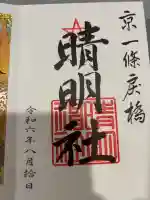 京一條戻橋
晴明社
令和六年八月拾日